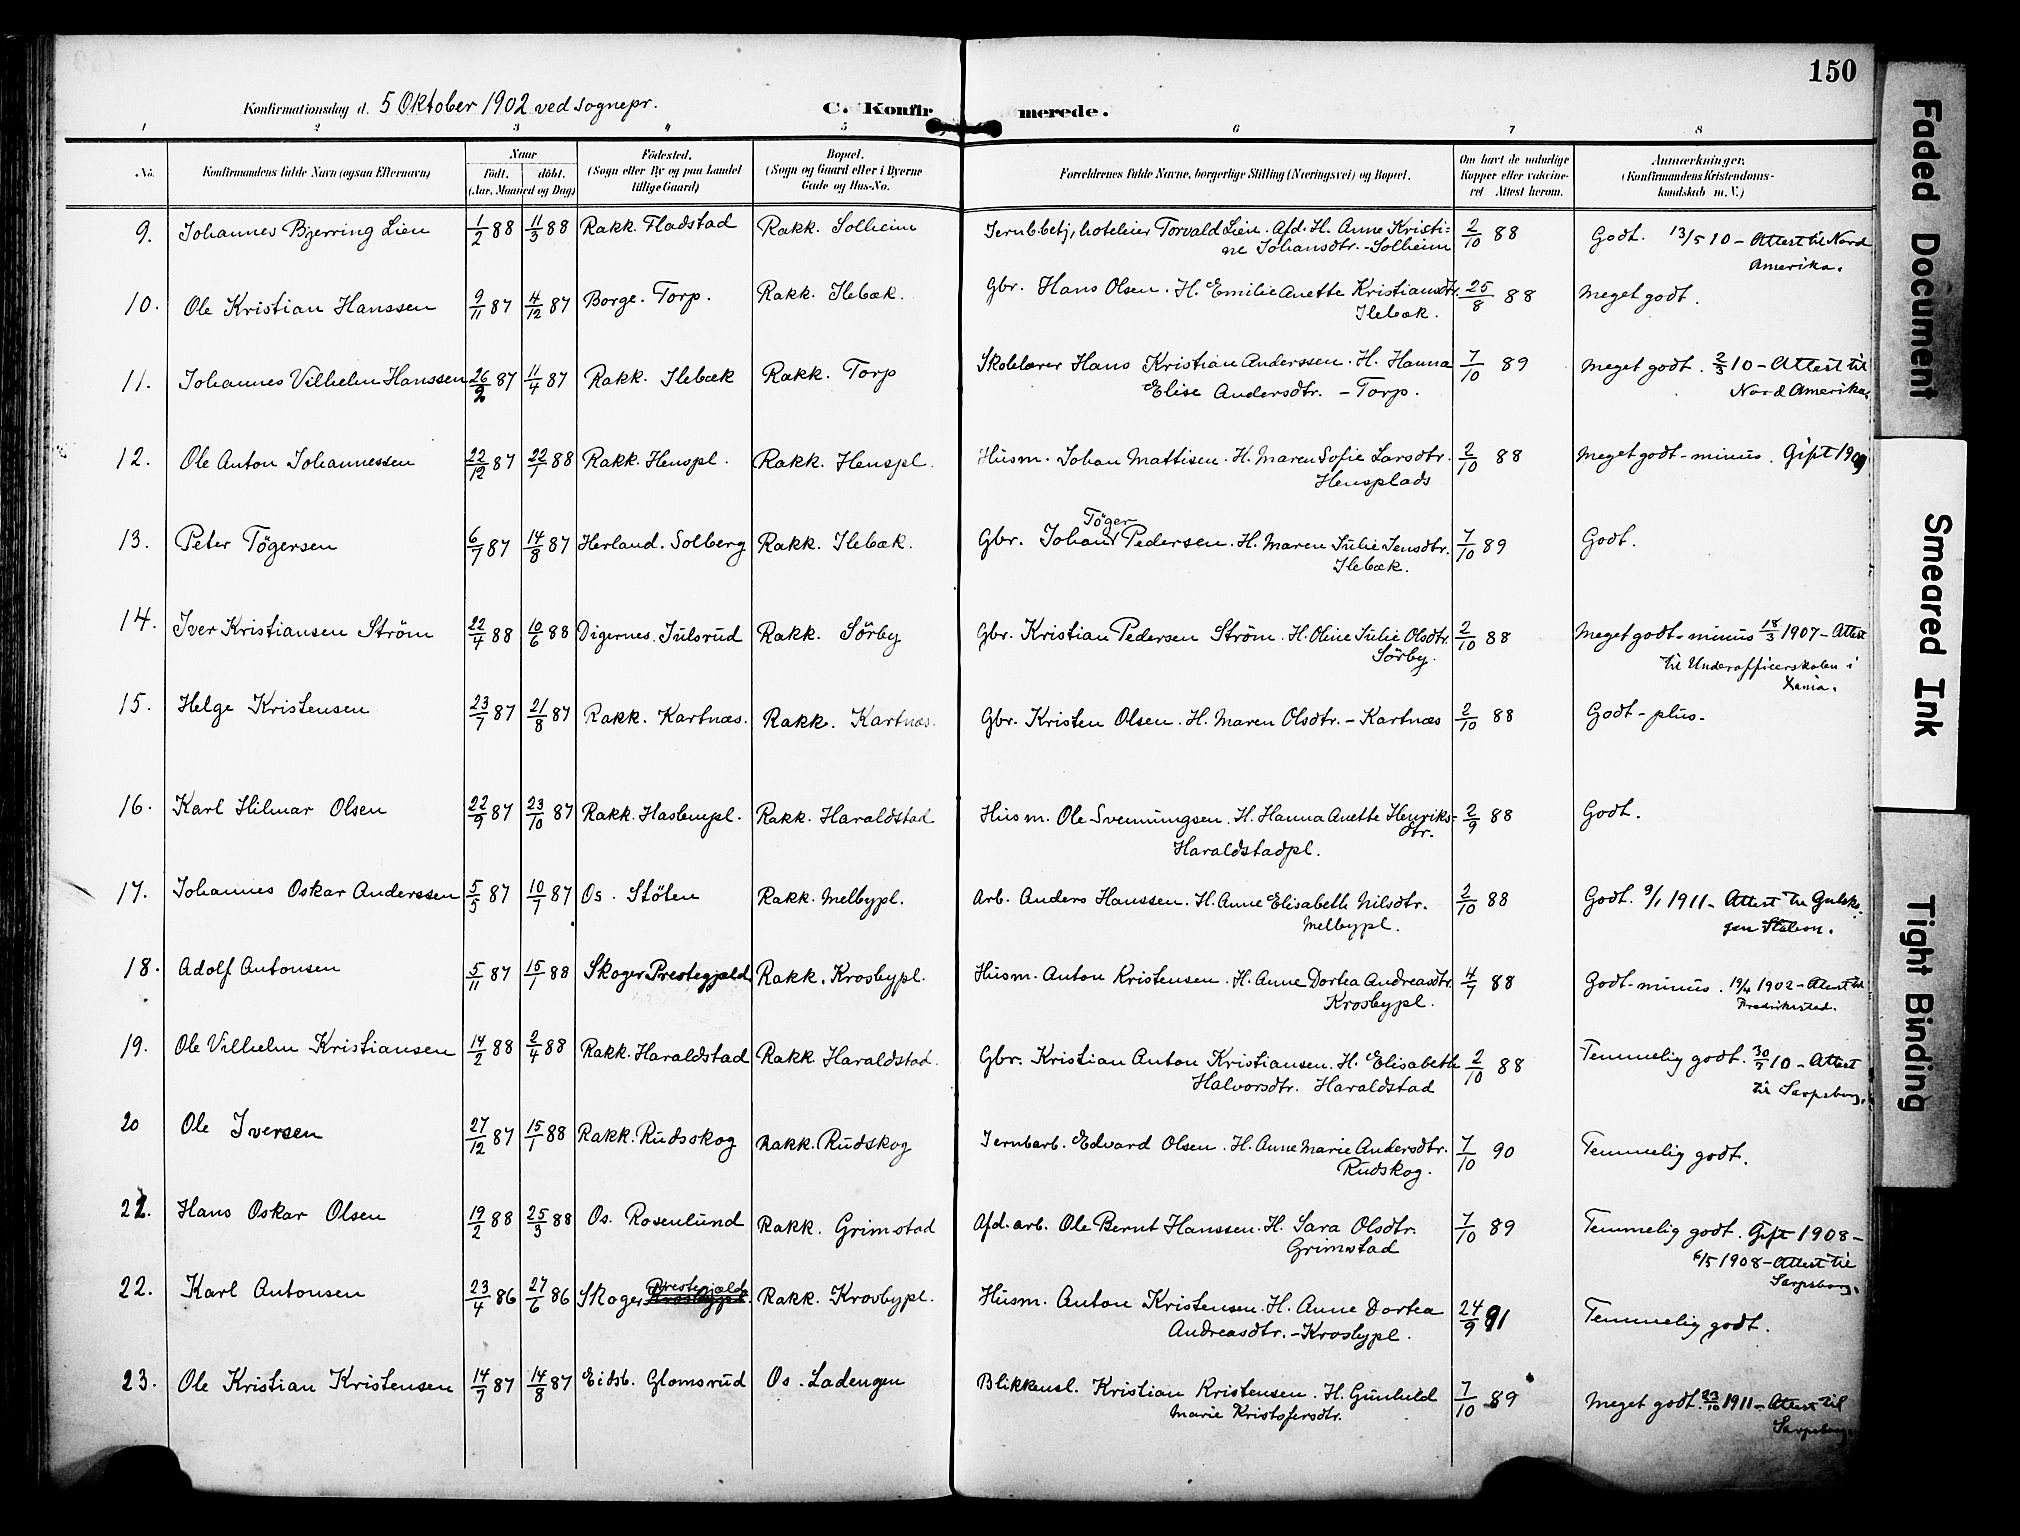 150
Konfirmationsdag d. 5 Oktober 1902 ved sognepr.
C. Konfirmerede.
1 2 3 4 5 6 7 8
No. Konfirmandens fulde Navn (ogsaa Efternavn) Naar Födt. döbt. (Aar, Maaned og Dag) Födested. (Sogn eller By og paa Landet tillige Gaard) Bopæl. (Sogn og Gaard eller i Byerne Gade og Hus-No. Forældrenes fulde Navne, borgerlige Stilling (Næringsvei) og Bopæl. Om havt de naturlige Kopper eller vaccineret Attest herom. Anmærkninger. (Konfirmandens Kristendomskundskab m. V.)
9. Johannes Bjerring Lien 1/2 88 11/3 88 Rakk. Fladstad Rakk. Solheim Jernb.betj, hoteleier Torvald Lien. Afd. H. Anne Kristi- 2/10 88 Godt. 13/5 10 - Attest til Nord
ne Johansdtr. - Solheim Amerika.
10. Ole Kristian Hanssen 9/11 87 4/12 87 Borge. Torp. Rakk. Ilebæk. Gbr. Hans Olsen. H. Emilie Anette Kristiansdtr. 25/8 88 Meget godt.
Ilebæk.
11. Johannes Vilhelm Hanssen 26/2 87 11/4 87 Rakk. Ilebæk Rakk. Torp Skolelærer Hans Kristian Anderssen. H. Hanna 7/10 89 Meget godt. 2/3 10 - Attest til
Elise Andersdtr. - Torp. Nord Amerika.
12. Ole Anton Johannessen 22/12 87 22/1 88 Rakk. Henspl. Rakk. Henspl. Husm. Johan Mattisen. H. Maren Sofie Larsdtr. 2/10 88 Meget godt - minus. Gift 1909
Hensplads
Töger
13. Peter Tögersen 6/7 87 14/8 87 Herland. Solberg Rakk. Ilebæk. Gbr. Johan Pedersen. H. Maren Julie Jensdtr. 7/10 89 Godt.
Ilebæk.
14. Iver Kristiansen Ström 22/4 88 10/6 88 Digernes. Julsrud Rakk. Sörby Gbr. Kristian Pedersen Ström. H. Oline Julie Olsdtr. 2/10 88 Meget godt - minus 18/3 1907 - Attest
Sörby. til Underofficerskolen i
Xania.
15. Helge Kristensen 23/7 87 21/8 87 Rakk. Kartnæs. Rakk. Kartnæs. Gbr. Kristen Olsen. H. Maren Olsdtr. - Kartnæs 2/10 88 Godt - plus.
16. Karl Hilmar Olsen 22/9 87 23/10 87 Rakk. Haslempl. Rakk. Haraldstad Husm. Ole Svenningsen. H. Hanna Anette Henriks- 2/9 88 Godt.
dtr.
Haraldstadpl.
17. Johannes Oskar Anderssen 5/5 87 10/7 87 Os. Stöten Rakk. Melbypl. Arb. Anders Hanssen. H. Anne Elisabeth Nilsdtr. 2/10 88 Godt. 9/1 1911 - Attest til Gulsko-
Melbypl. gen Station.
18. Adolf Antonsen 5/11 87 15/1 88 Skoger Prestegjeld Rakk. Krosbypl. Husm. Anton Kristensen. H. Anne Dortea Andreasdtr. 4/7 88 Godt - minus. 19/4 1902 - Attest til
Krosbypl. Fredrikstad.
19. Ole Vilhelm Kristiansen 14/2 88 2/4 88 Rakk. Haraldstad Rakk Haraldstad. Gbr. Kristian Anton Kristiansen. H. Elisabeth 2/10 88 Temmelig godt. 30/7 10 - Attest
Halvorsdtr. Haraldstad til Sarpsborg.
20 Ole Iversen 27/12 87 15/1 88 Rakk. Rudsskog Rakk. Rudskog Jernbarb. Edvard Olsen. H. Anne Marie Andersdtr. 7/10 90 Temmelig godt.
Rudskog.
21. Hans Oskar Olsen 19/2 88 25/3 88 Os. Rosenlund Rakk. Grimstad Afd. arb. Ole Bernt Hanssen. H. Sara Olsdtr. 7/10 89 Temmelig godt. Gift 1908 -
Grimstad 6/5 1908 - Attest til
Sarpsborg.
22. Karl Antonsen 23/4 86 27/6 86 Skoger Prestegjeld. Rakk. Krosbypl. Husm. Anton Kristensen. H. Anne Dortea 24/9 91 Temmelig godt.
Andreasdtr. - Krosbypl.
23. Ole Kristian Kristensen 14/7 87 14/8 87 Eidsb. Glomsrud Os. Ladengen Blikkensl. Kristian Kristensen. H. Gunhild 7/10 89 Meget godt. 23/10 1911 - Attest til
Marie Kristofersdtr. Sarpsborg.
Faded Document
Smeared Ink
Tight Binding